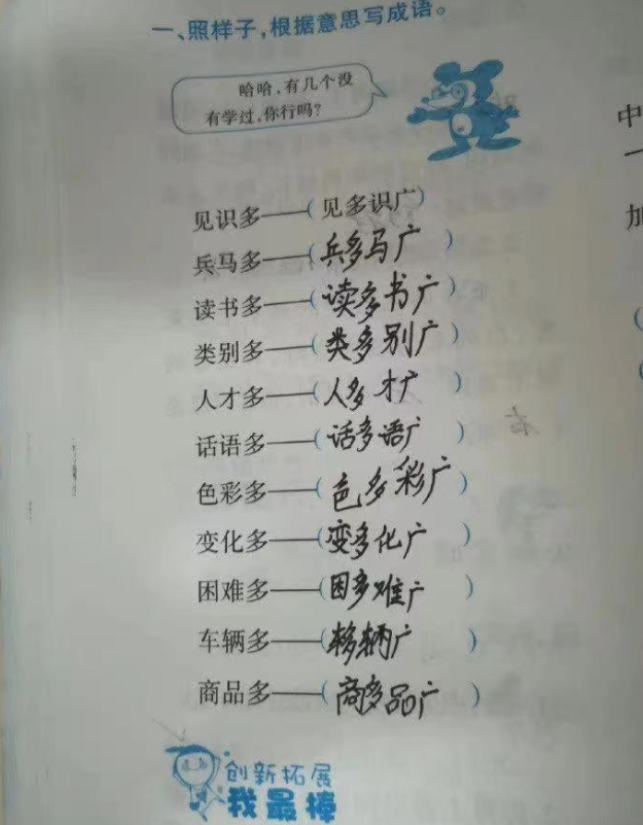 一、照样子，根据意思写成语。
哈哈，有几个没
有学过，你行吗？
见识多——（见多识广）
兵马多——（兵多马广）
读书多——（读多书广）
类别多——（类多别广）
人才多——（人多才广）
话语多——（话多语广）
色彩多——（色多彩广）
变化多——（变多化广）
困难多——（困多难广）
车辆多——（车多辆广）
商品多——（商多品广）
创新拓展
我最棒
中
一
加